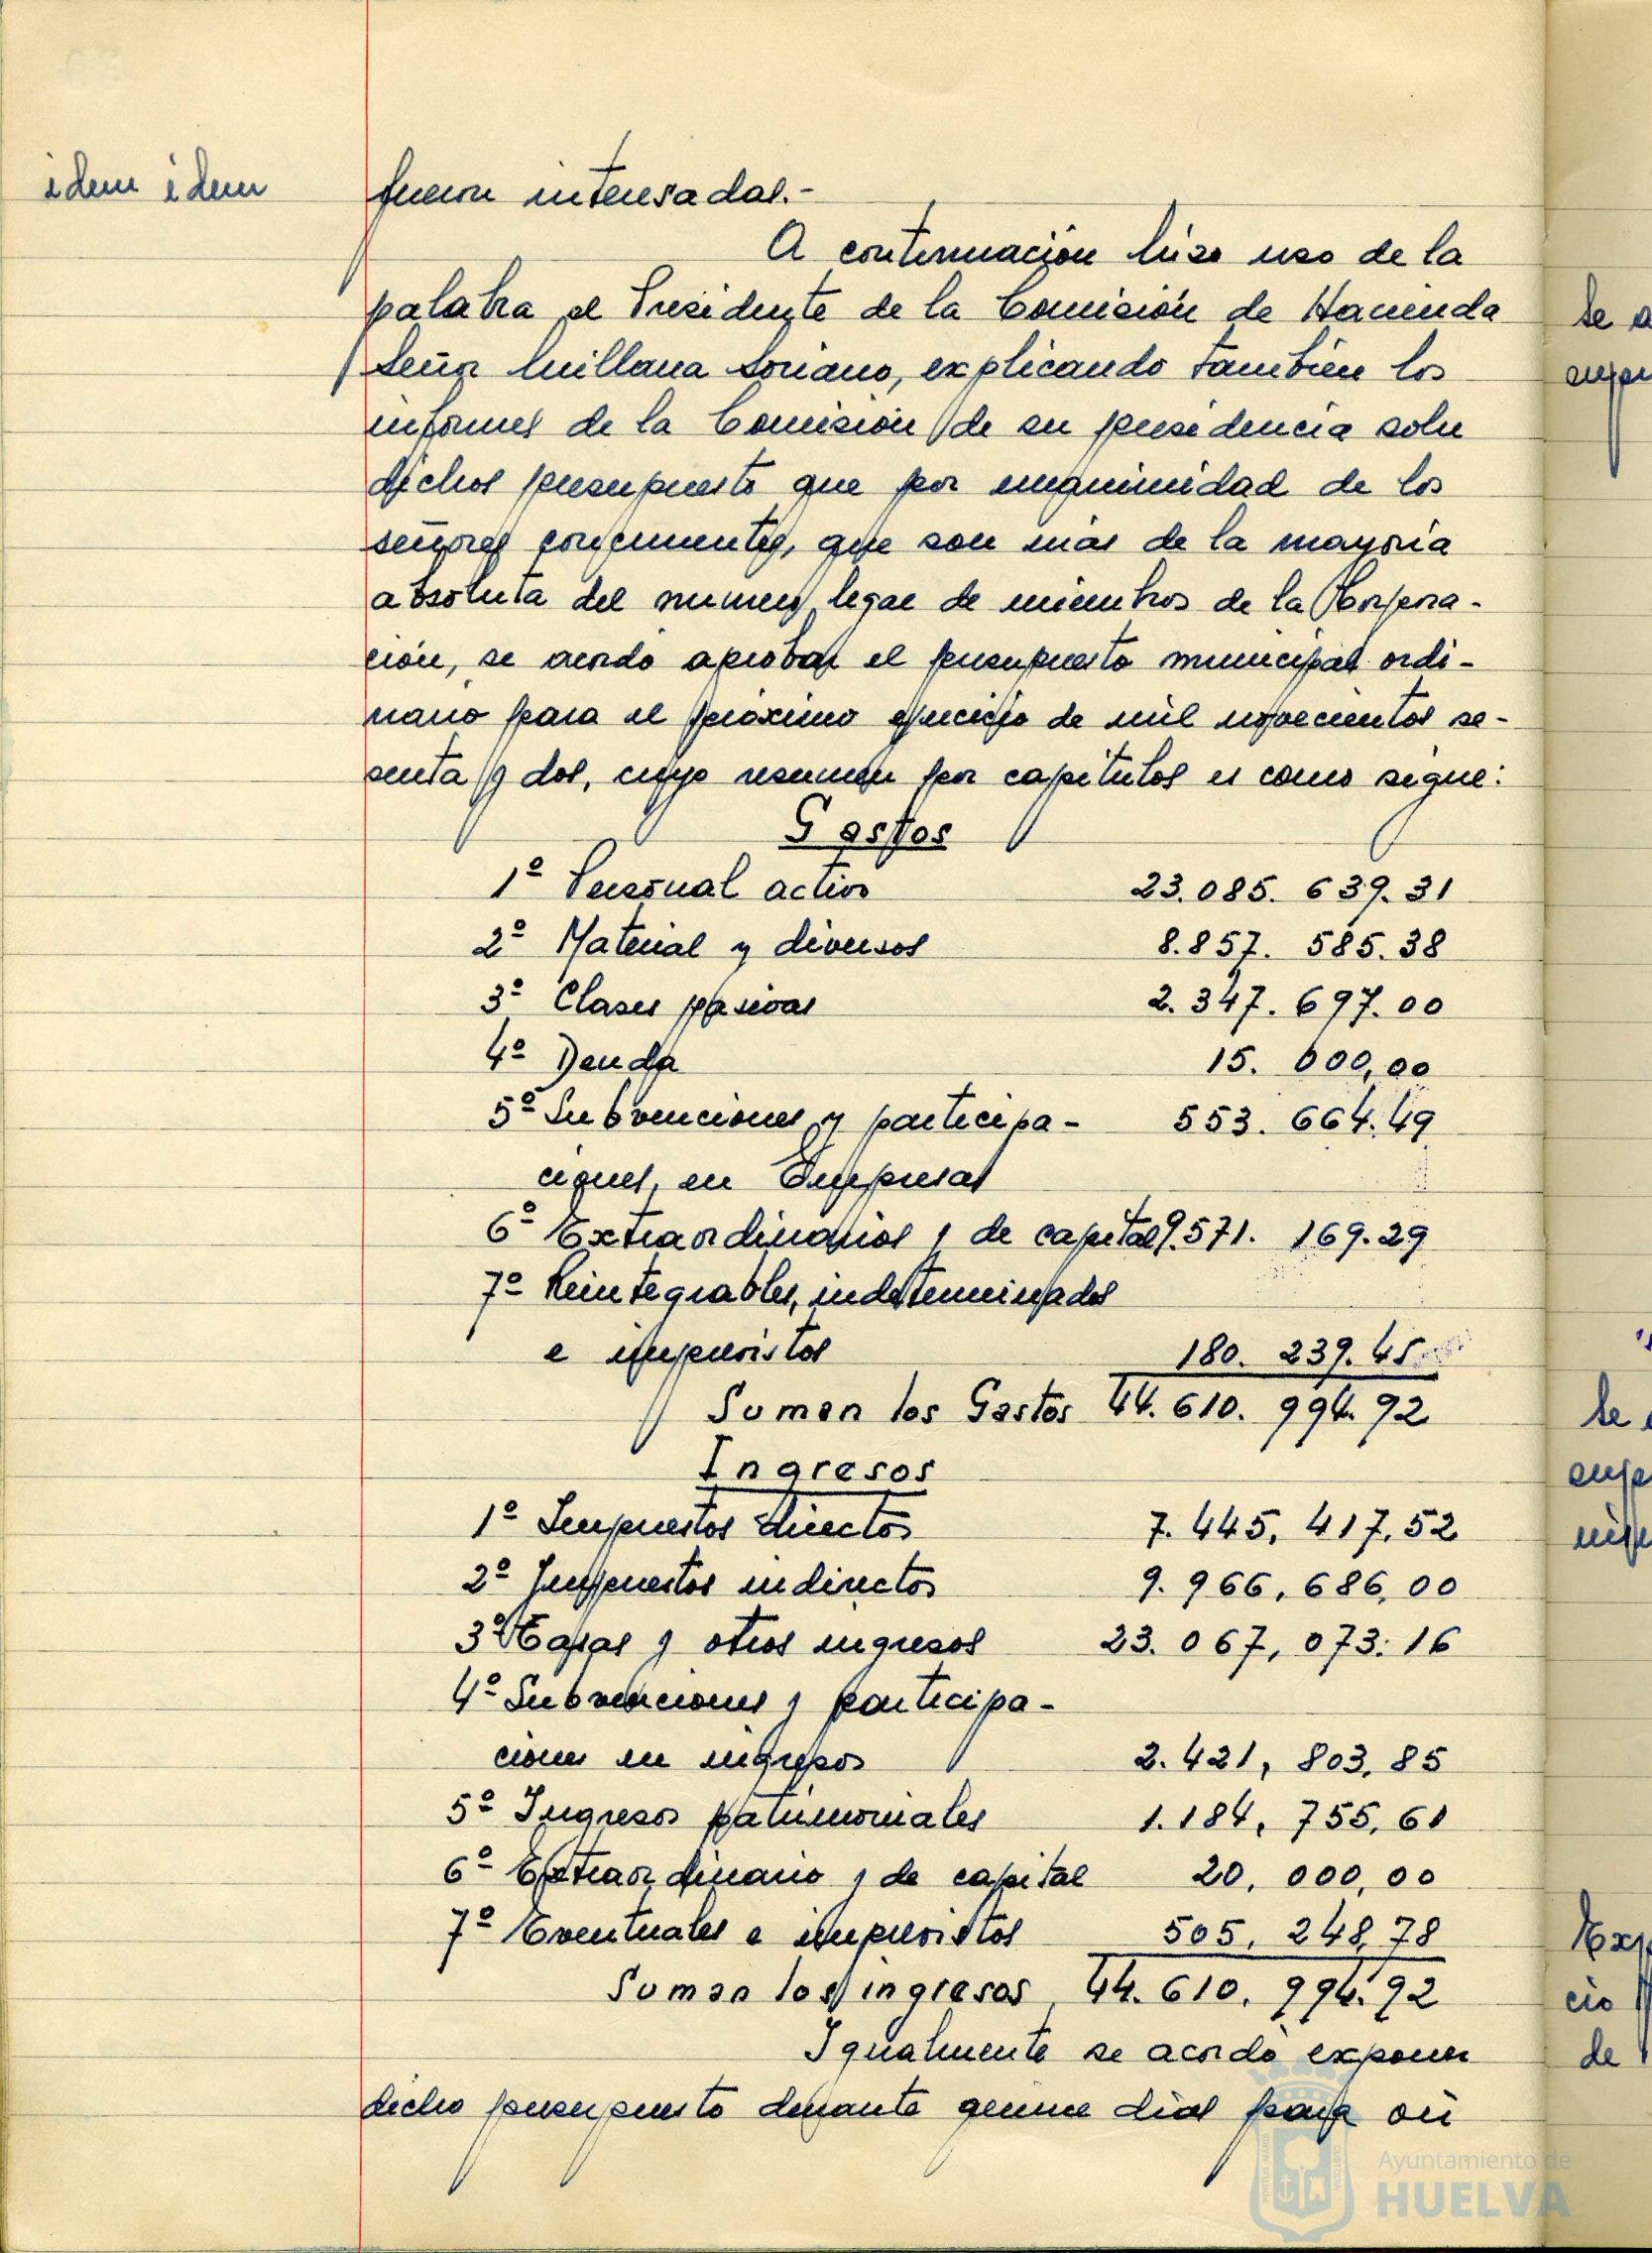 idem idem
fueron interesadas.-
A continuación hizo uso de la
palabra el Presidente de la Comisión de Hacienda
Señor Quillana Soriano, explicando también los
informes de la Comisión de su presidencia sobre
dichos presupuesto que por unanimidad de los
señores concurrentes, que son más de la mayoría
absoluta del numero legal de miembros de la Corpora-
ción, se acordó aprobar el presupuesto municipal ordi-
nario para el próximo ejercicio de mil novecientos se-
senta y dos, cuyo resumen por capitulos es como sigue:
Gastos
1º Personal activo 23.085.639.31
2º Material y diversos 8.857.585.38
3º Clases pasivas 2.347.697.00
4º Deuda 15.000,00
5º Subvenciones y participa- 553.664.49
ciones, en Empresas
6º Extraordinarios y de capital 9.571.169.29
7º Reintegrables, indeterminados
e imprevistos 180.239.45
Suman los Gastos 44.610.994.92
Ingresos
1º Impuestos directos 7.445,417,52
2º Impuestos indirectos 9.966,686,00
3º Tasas y otros ingresos 23.067,073.16
4º Subvenciones y participa-
ciones en ingresos 2.421,803,85
5º Ingresos patrimoniales 1.184,755,61
6º Extraordinario y de capital 20,000,00
7º Eventuales e imprevistos 505,248,78
Suman los ingresos 44.610.994.92
Igualmente se acordó exponer
dicho presupuesto durante quince días para oir
Ayuntamiento de
HUELVA